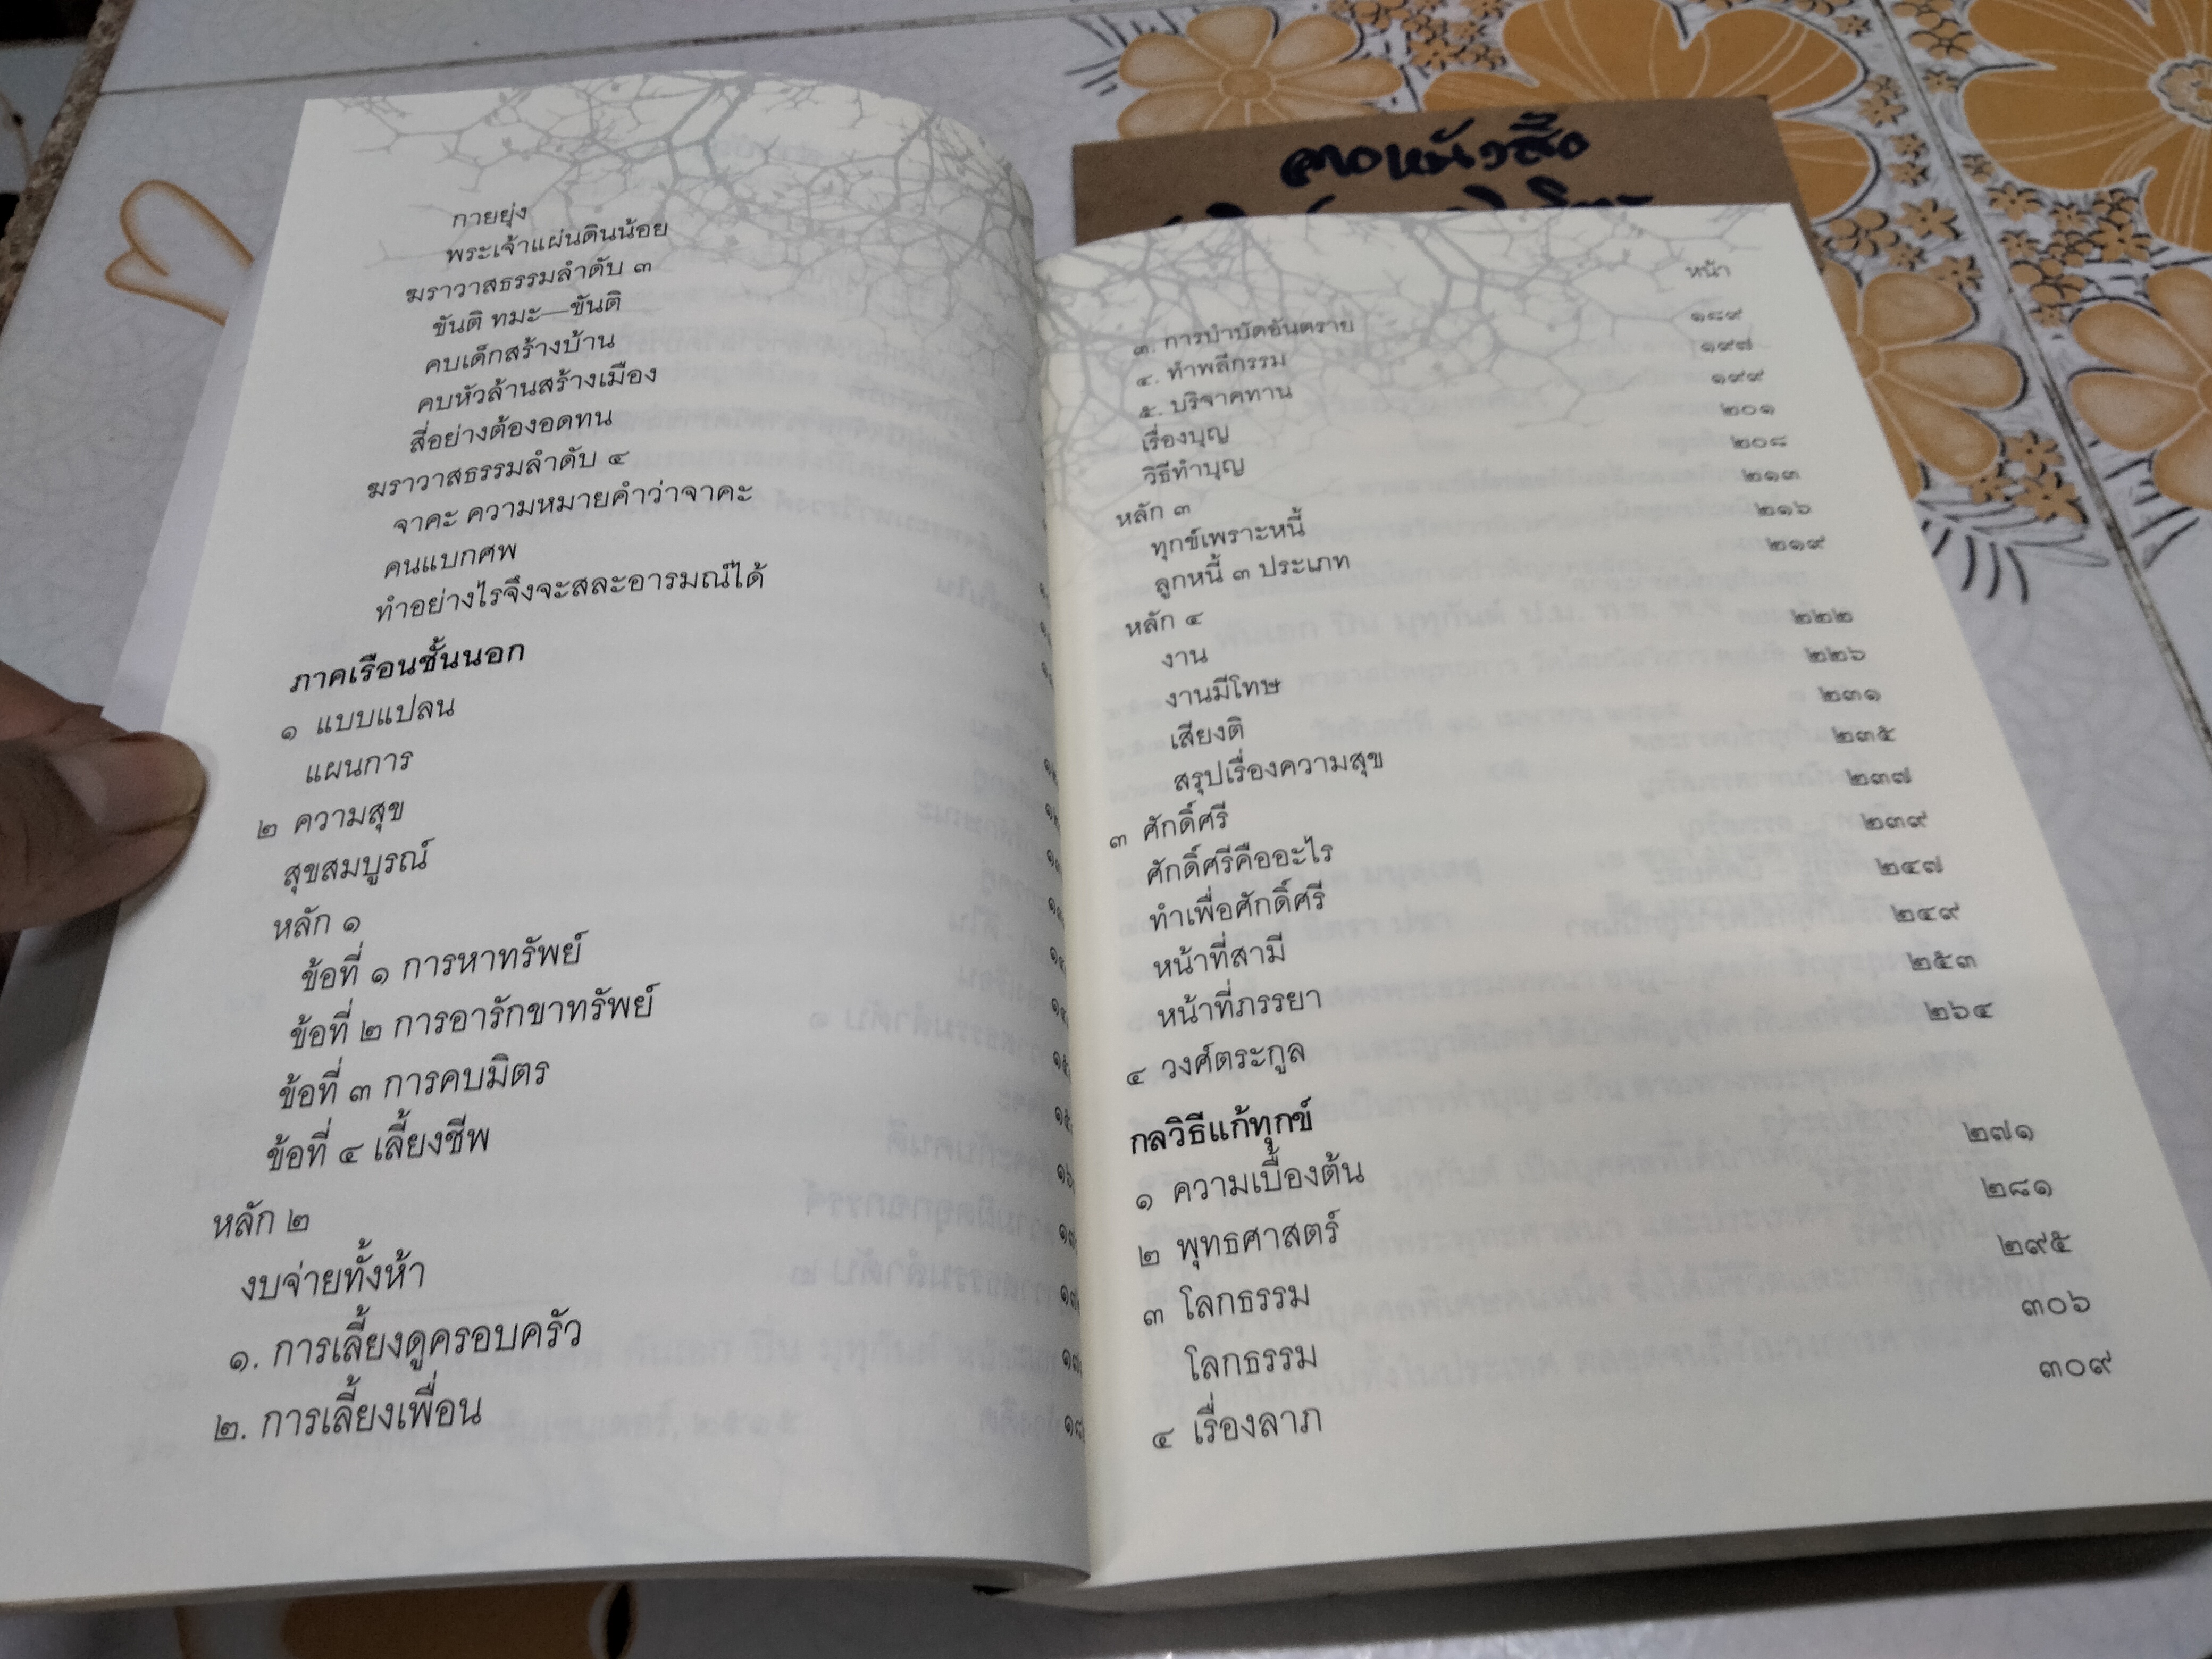 กายยุ่ง
พระเจ้าแผ่นดินน้อย
ฆราวาสธรรมลำดับ ๓
ขันติ ทมะ—ขันติ
คบเด็กสร้างบ้าน
คบหัวล้านสร้างเมือง
สี่อย่างต้องอดทน
ฆราวาสธรรมลำดับ ๔
จาคะ ความหมายคำว่าจาคะ
คนแบกศพ
ทำอย่างไรจึงจะสละอารมณ์ได้
ภาคเรือนชั้นนอก
๑ แบบแปลน
แผนการ
๒ ความสุข
สุขสมบูรณ์
หลัก ๑
ข้อที่ ๑ การหาทรัพย์
ข้อที่ ๒ การอารักขาทรัพย์
ข้อที่ ๓ การคบมิตร
ข้อที่ ๔ เลี้ยงชีพ
หลัก ๒
งบจ่ายทั้งห้า
๑. การเลี้ยงดูครอบครัว
๒. การเลี้ยงเพื่อน
ลาดหนังสือ
หน้า
๓. การบำบัดอันตราย ๑๘๙
๔. ทำพลีกรรม ๑๙๗
๕. บริจาคทาน ๑๙๙
เรื่องบุญ ๒๐๑
วิธีทำบุญ ๒๐๘
หลัก ๓ ๒๑๓
ทุกข์เพราะหนี้ ๒๑๖
ลูกหนี้ ๓ ประเภท ๒๑๙
หลัก ๔
งาน ๒๒๒
งานมีโทษ ๒๒๖
เสียงติ ๒๓๑
สรุปเรื่องความสุข ๒๓๕
๓ ศักดิ์ศรี ๒๓๗
ศักดิ์ศรีคืออะไร ๒๓๙
ทำเพื่อศักดิ์ศรี ๒๔๗
หน้าที่สามี ๒๔๙
หน้าที่ภรรยา ๒๕๓
๔ วงศ์ตระกูล ๒๖๔
กลวิธีแก้ทุกข์
๑ ความเบื้องต้น ๒๗๑
๒ พุทธศาสตร์ ๒๘๑
๓ โลกธรรม ๒๙๕
โลกธรรม ๓๐๖
๔ เรื่องลาภ ๓๐๙